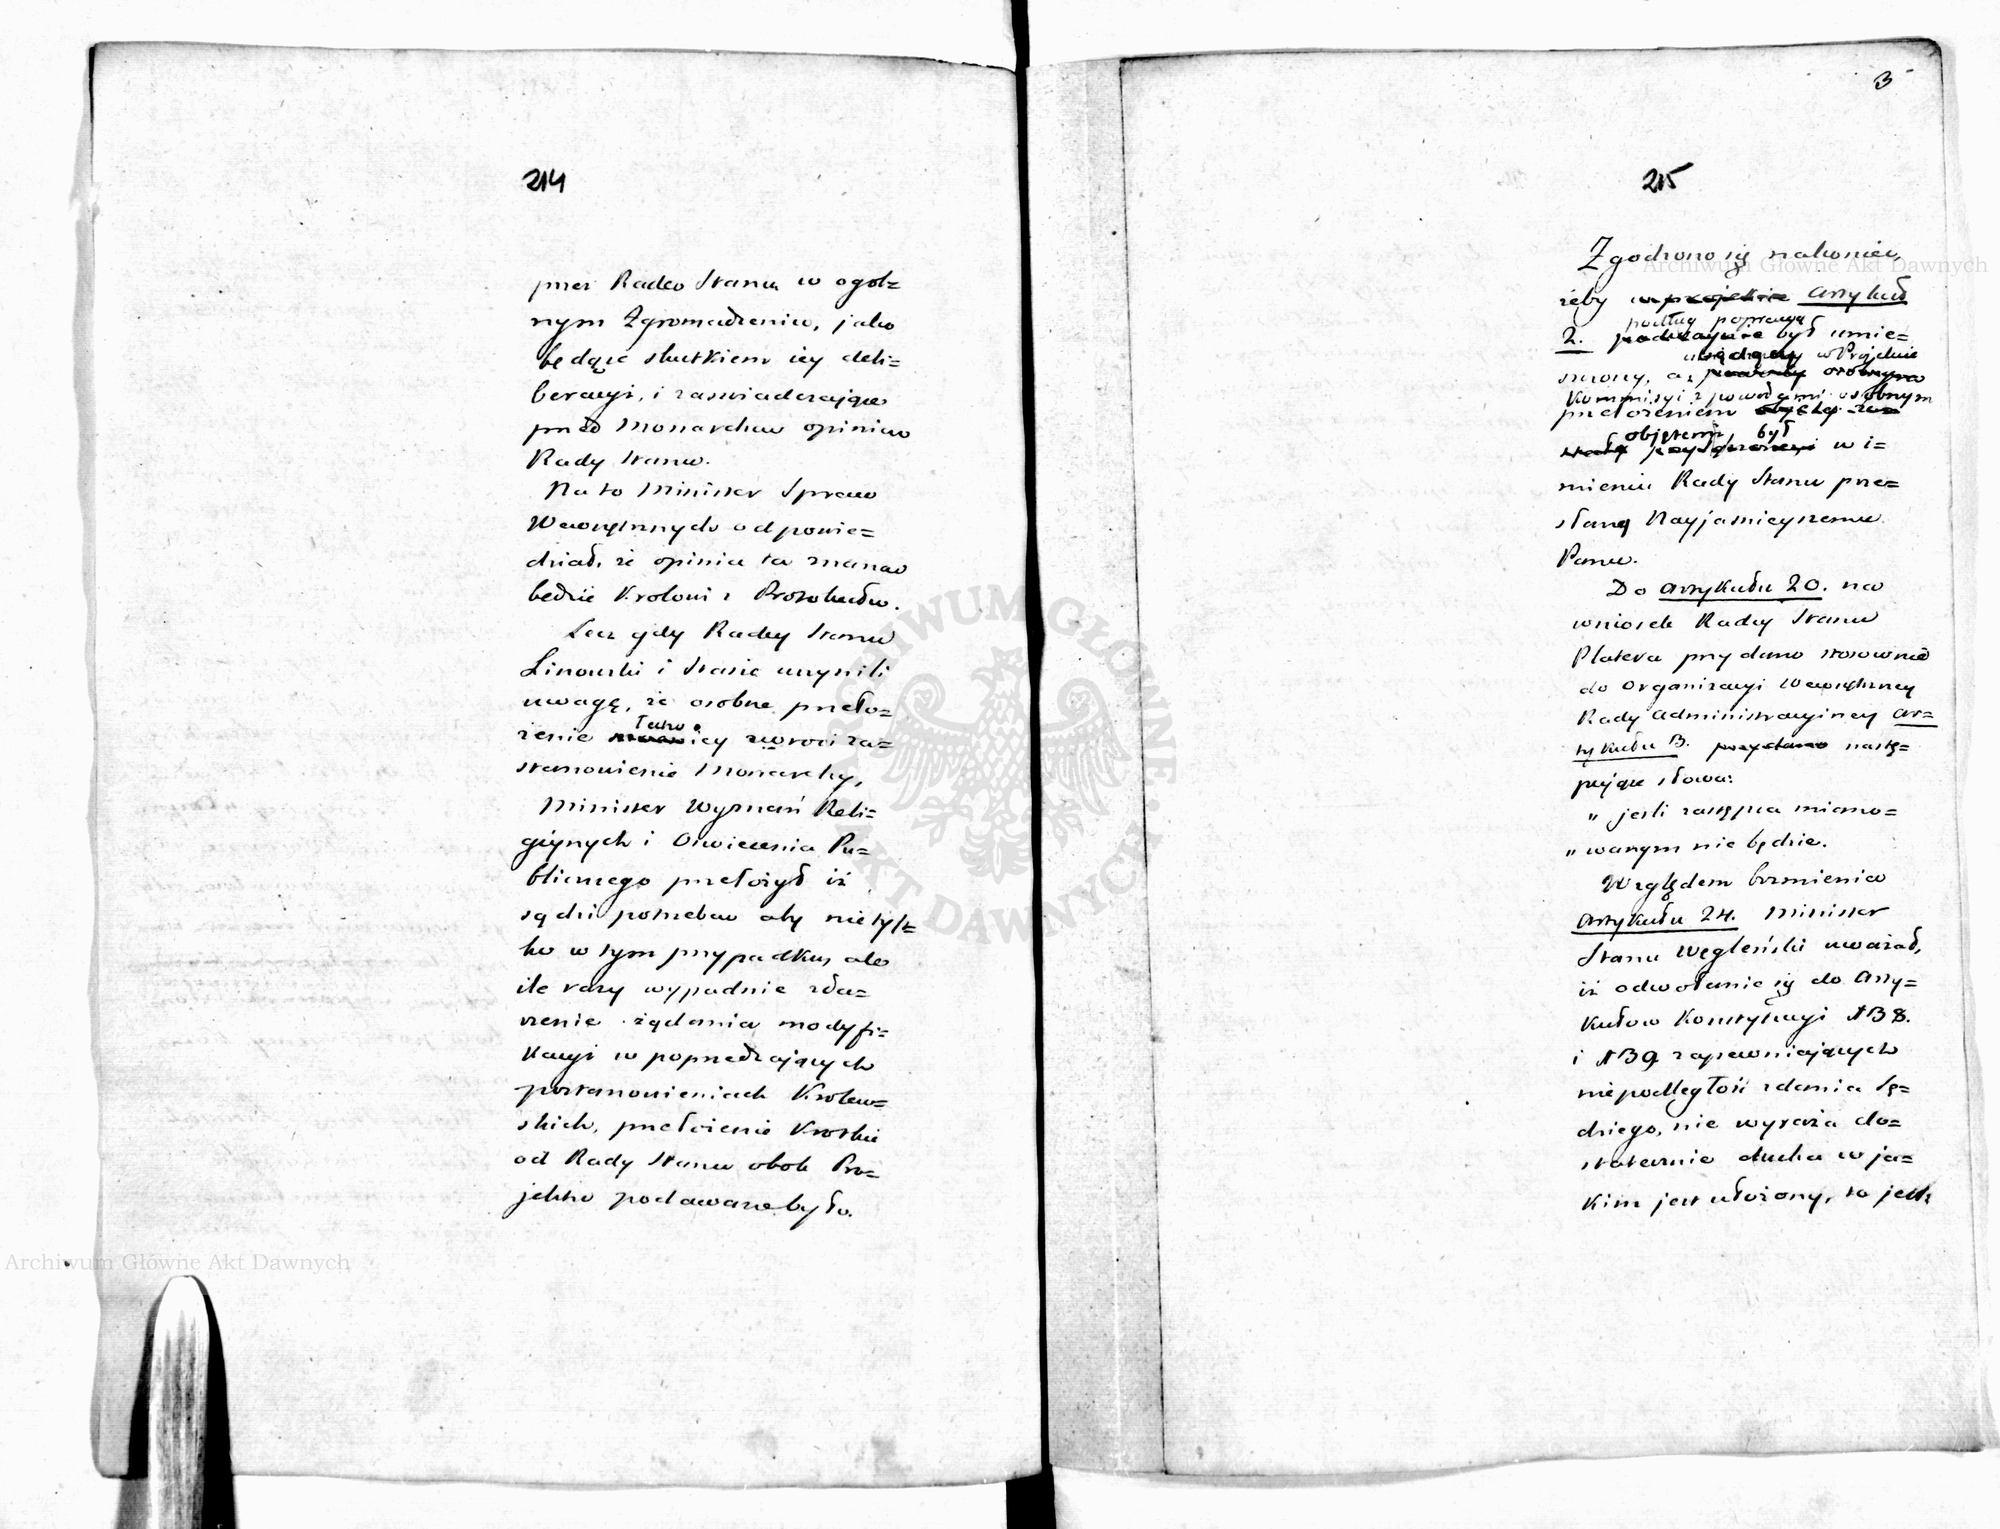 214
przez Radę Stanu w ogól=
nym Zgromadzeniu, jako
będące skutkiem iey deli=
beracyi, i zaświadczające
przed Monarchą opinią
Rady Stanu.
Na to Minister Spraw
Wewnętrznych odpowie=
dział, że opinia ta znaną
będzie Królowi z Protokułu.
Lecz gdy Radcy Stanu
Linowski i Staszic uczynili
uwagę, że osobne przeło=
żenie łatwiey zwróci za=
stanowienie Monarchy,
Minister Wyznań Reli=
giynych i Oświecenia Pu=
blicznego przełożył iż
sądzi potrzebą aby nietyl=
ko w tym przypadku, ale
ile razy wypadnie zda=
rzenie żądania modyfi=
kacyi w poprzedzających
postanowieniach Królew=
skich, przełożenie krótkie
od Rady Stanu obok Pro=
jektu podawane było.
3
215
Zgodzono się nakoniec,
żeby w projekcie Artykuł
podług poprawy
2. był umie=
w Projekcie
szczony, a
Kommisyi z powodami osobnym
przełożeniem
objętemi, był
w i=
mieniu Rady Stanu prze=
słany Nayjaśnieyszemu
Panu.
Do Artykułu 20. na
wniosek Radcy Stanu
Platera przydano stosownie
do Organizacyi Wewnętrzney
Rady Administracyiney Ar=
tykułu 13. przydano nastę=
pujące słowa:
„ jeśli zastępca miano=
„ wanym nie będzie.
Względem brzmienia
Artykułu 24. Minister
Stanu Węgleński uważał,
iż odwołanie się do Arty=
kułów Konstytucyi 138.
i 139 zapewniających
niepodległość zdania Sę=
dziego, nie wyraża do=
statecznie ducha w ja=
kim jest ułożony, to jest
Archiwum Główne Akt Dawnych
Archiwum Główne Akt Dawnych
ARCHIWUM GŁÓWNE AKT DAWNYCH